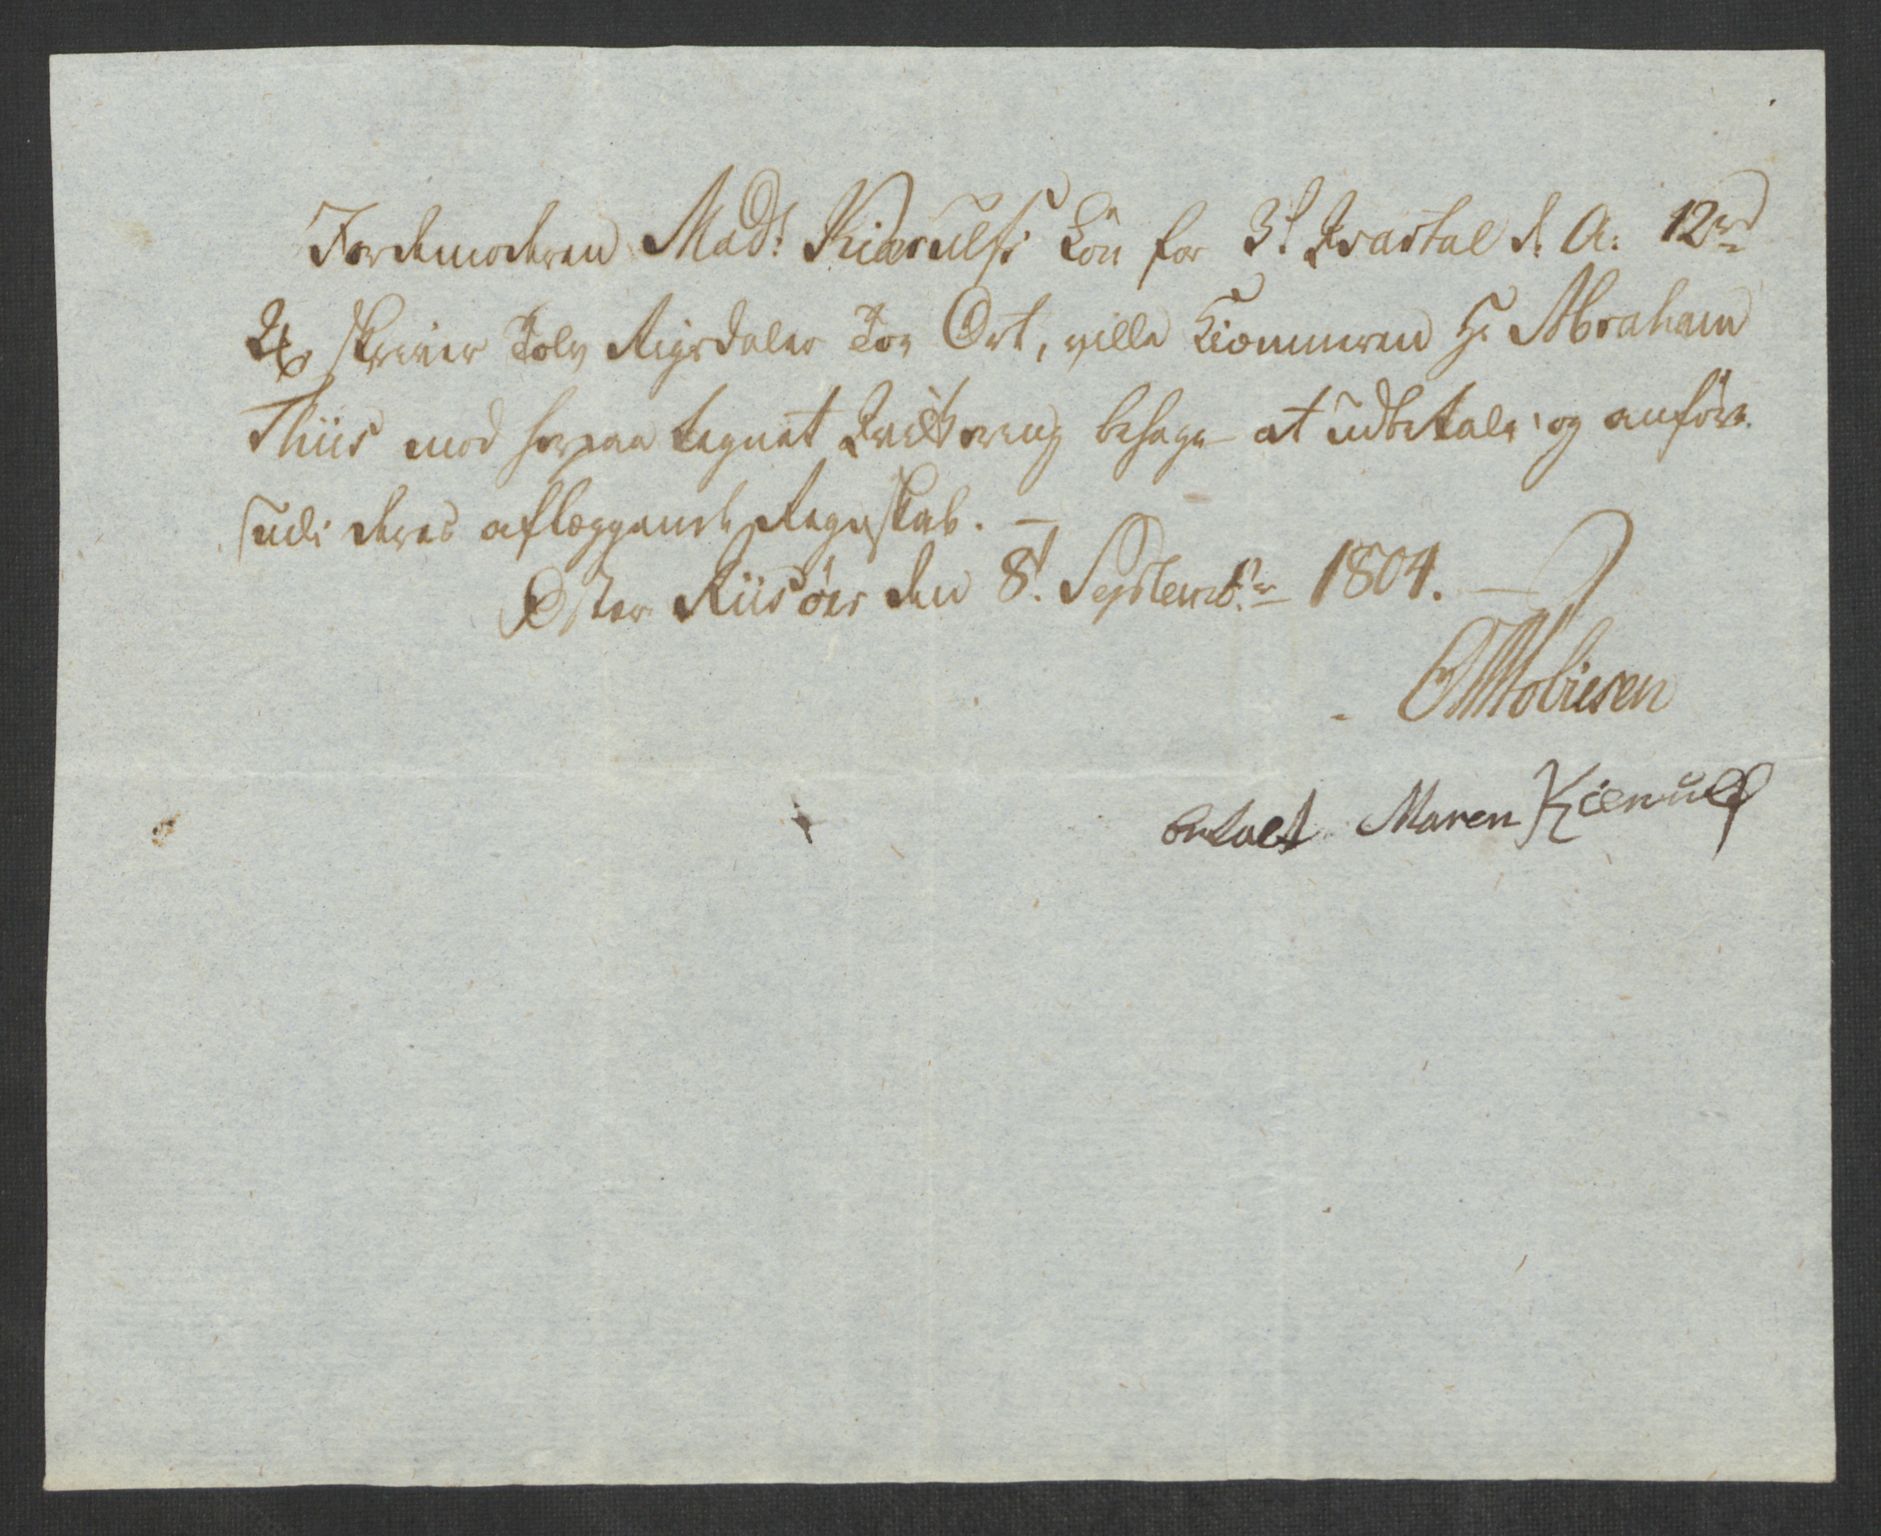 Jordemoderen Mad: Kierulfs Lön for 3d Qvartal d. A: 12rd
2 ß skriver Tolv Rigsdaler Toe Ort, ville Kiæmneren Hr Abraham
Thiis mod herpaa tegnet Qvittering behage at udbetale og anföre
udi deres aflæggende Regnskab. —
Øster Riisøer den 8d. Septembr 1804. —
Tobiesen
betalt Maren Kierulf